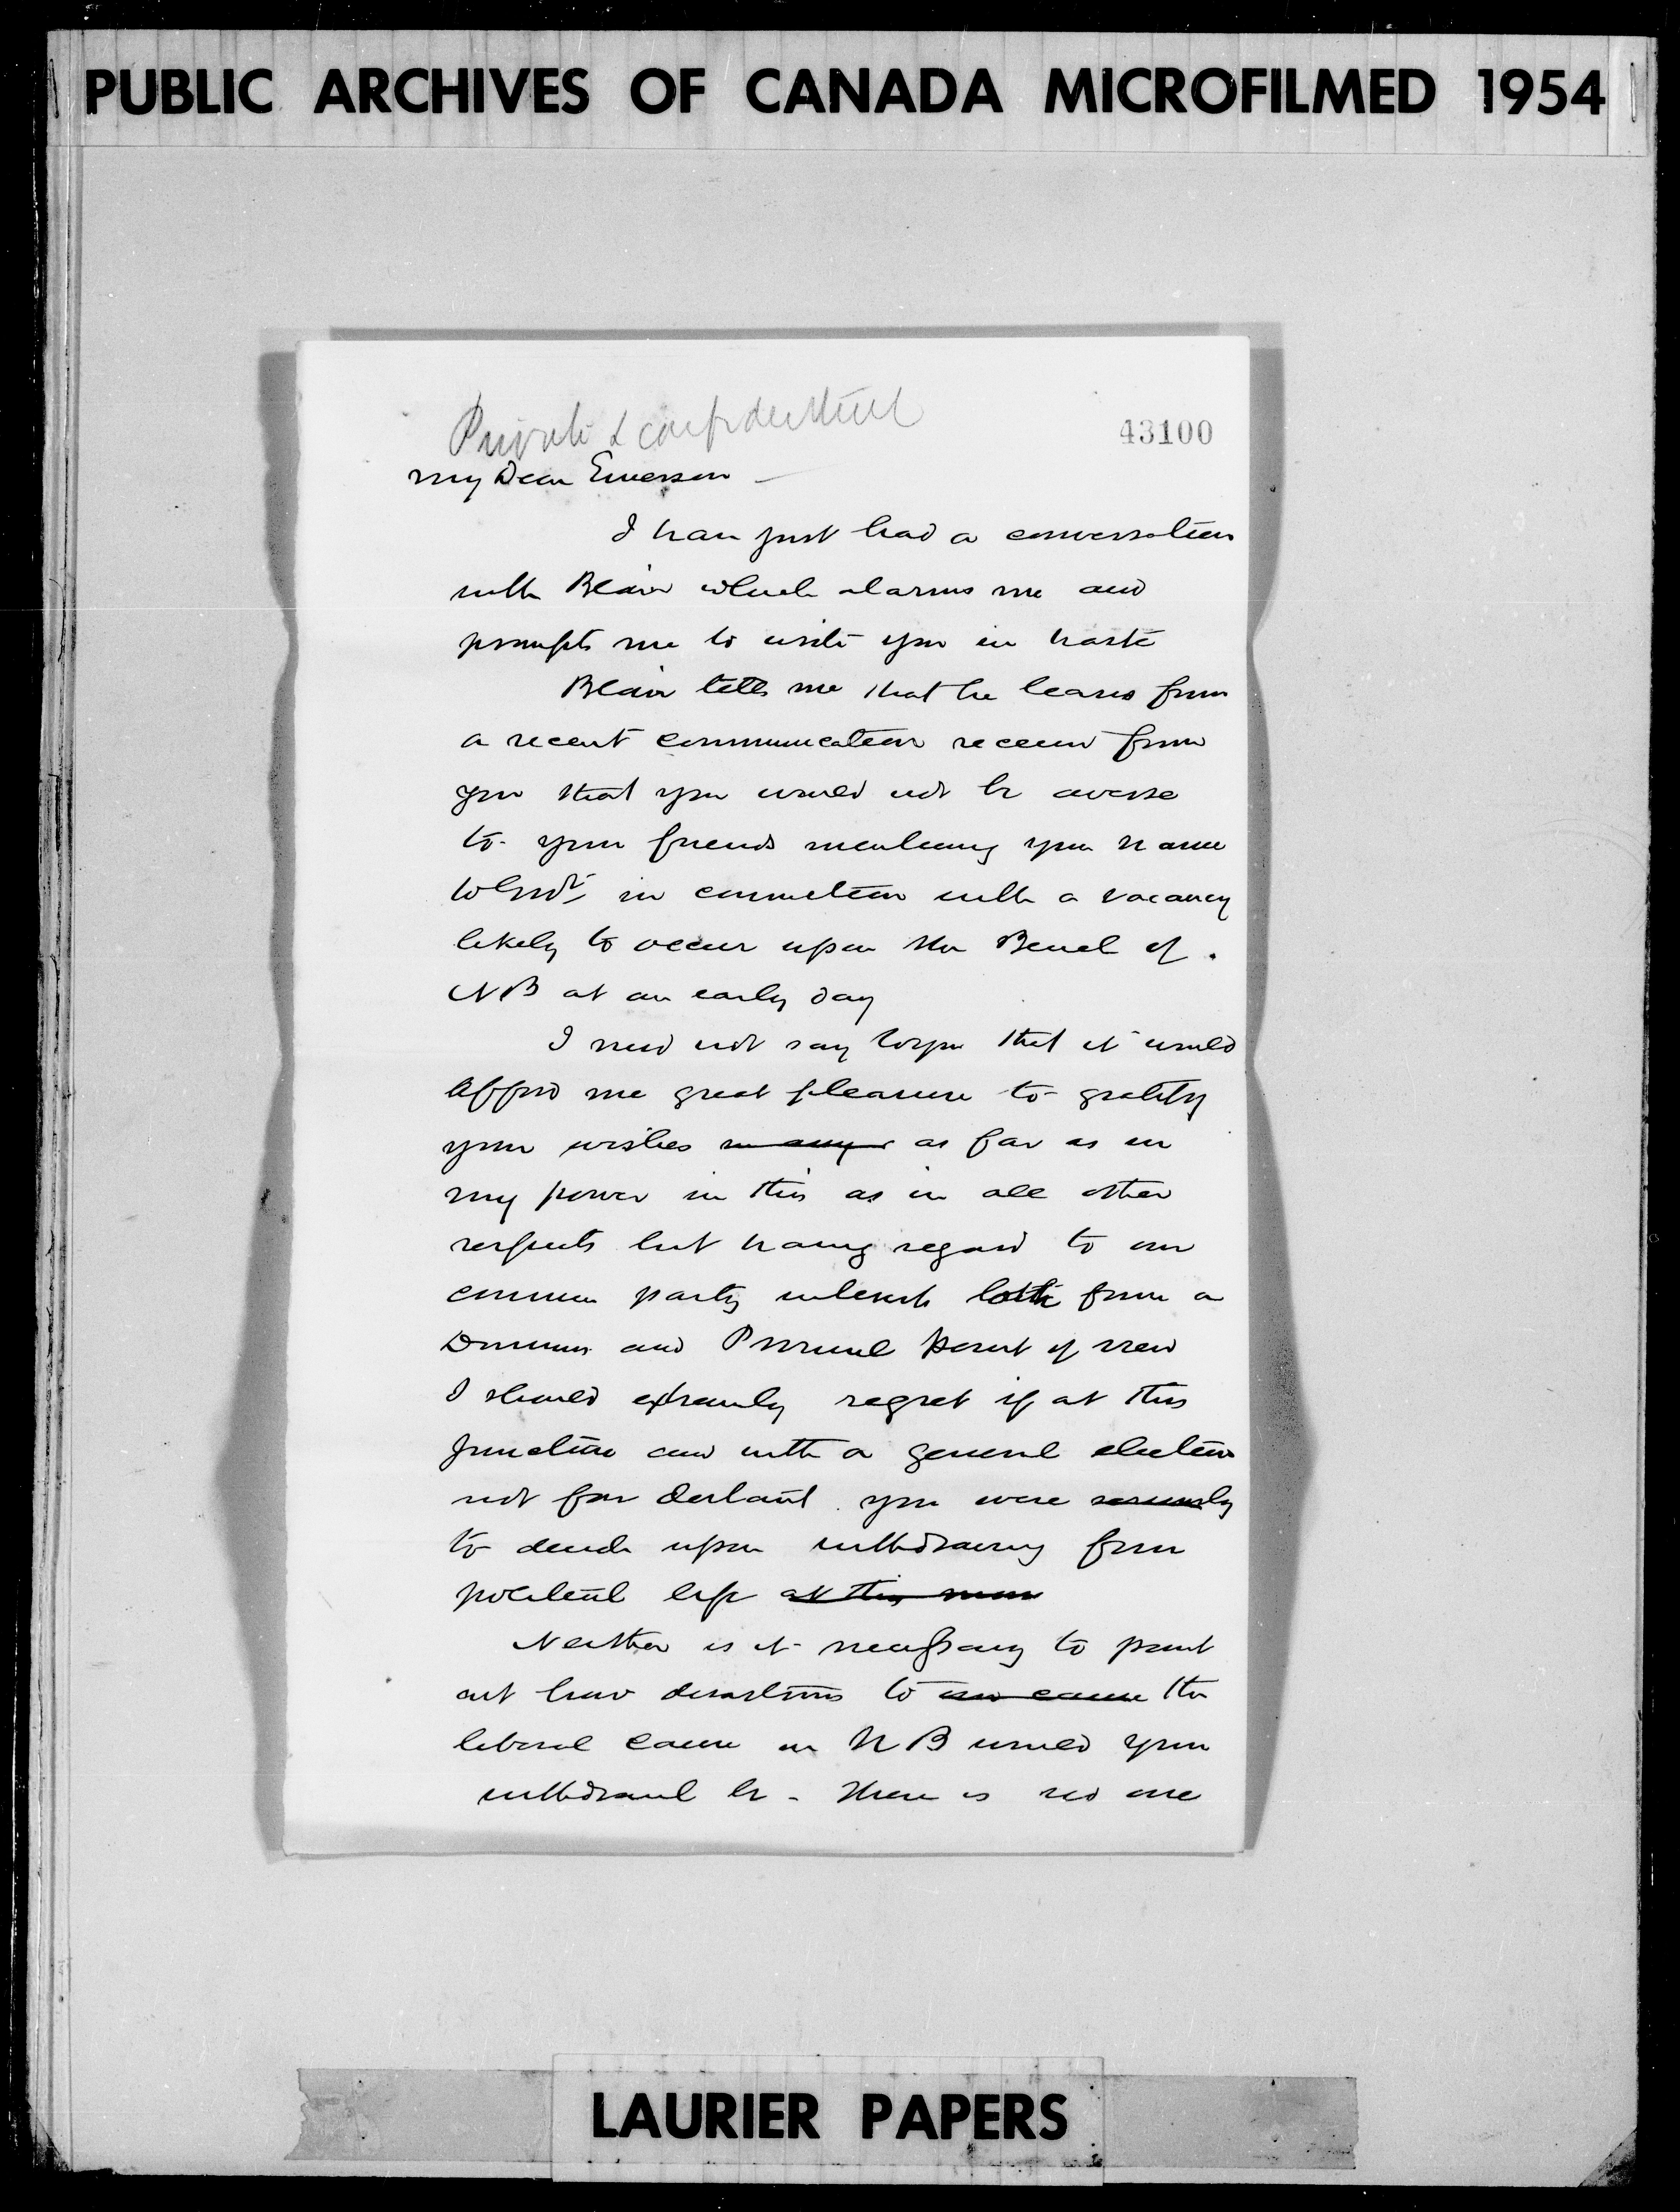 PUBLIC ARCHIVES OF CANADA MICROFILMED 1954
Private & confidential
43100
My Dear Emerson
I have just had a conversation
with Blair which alarms me and
prompts me to write you in haste
Blair tells me that he learns from
a recent communication received from
you that you would not be averse
to your friends mentioning your name
to Govt in connection with a vacancy
likely to occur upon the Bench of
NB at an early day
I need not say to you that it would
afford me great pleasure to gratify
your wishes in any as far as in
my power in this as in all other
respects but having regard to our
common party interests both from a
Dominion and Provincial point of view
I should extremely regret if at this
juncture and with a general election
not far distant you were seriously
to decide upon withdrawing from
political life at this mom
Neither is it necessary to point
out how disastrous to our cause the
liberal cause in NB would your
withdrawal be - There is no one
LAURIER PAPERS